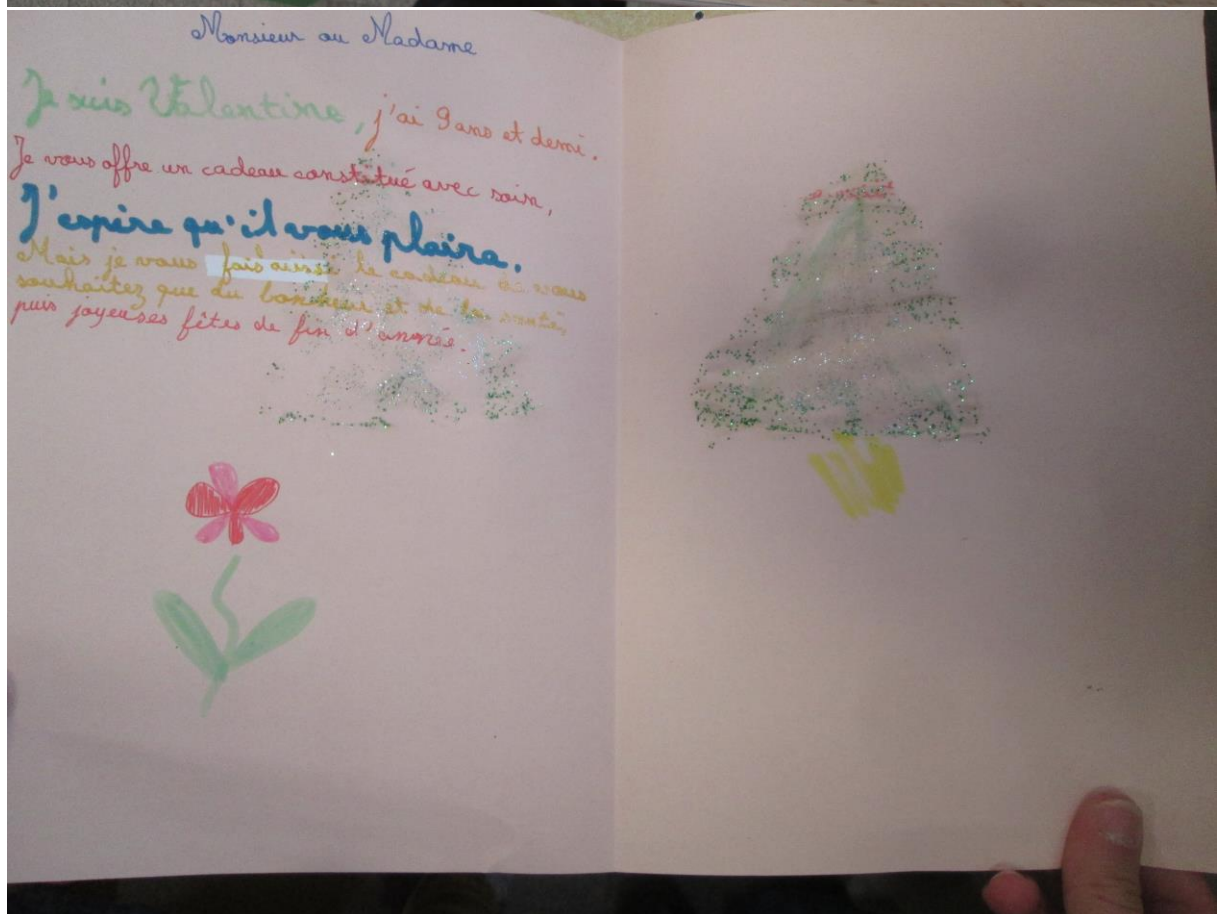 Monsieur ou Madame
Je suis Valentine, j'ai 9 ans et demi.
Je vous offre un cadeau constitué avec soin,
J'espère qu'il vous plaira.
Mais je vous fais aussi le cadeau de vous
souhaitez que du bonheur et de la santé,
puis joyeuses fêtes de fin d'année.